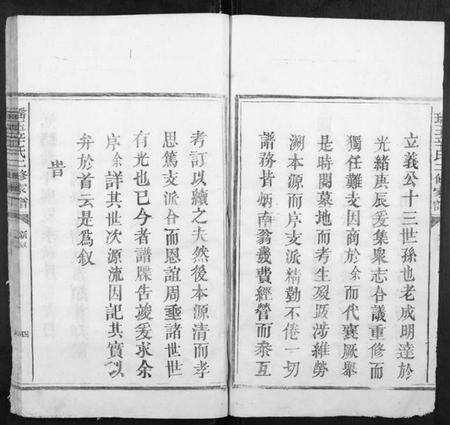 立義公十三世孫也老成明達於
光緒庚辰爰集衆志合議重修而
獨任難支因商於余而代襄厥舉
是時閱墓地而考生歿跋涉維勞
溯本源而序支派精勤不倦一切
譜務皆炳南翁義費經營而黍互
考訂以續之夫然後本源清而孝
思篤支派合而恩誼周垂諸世世
有光也已今者譜牒告竣爰求余
序余詳其世次源流因記其實以
弁於首云是爲叙
旹
氏二修家譜